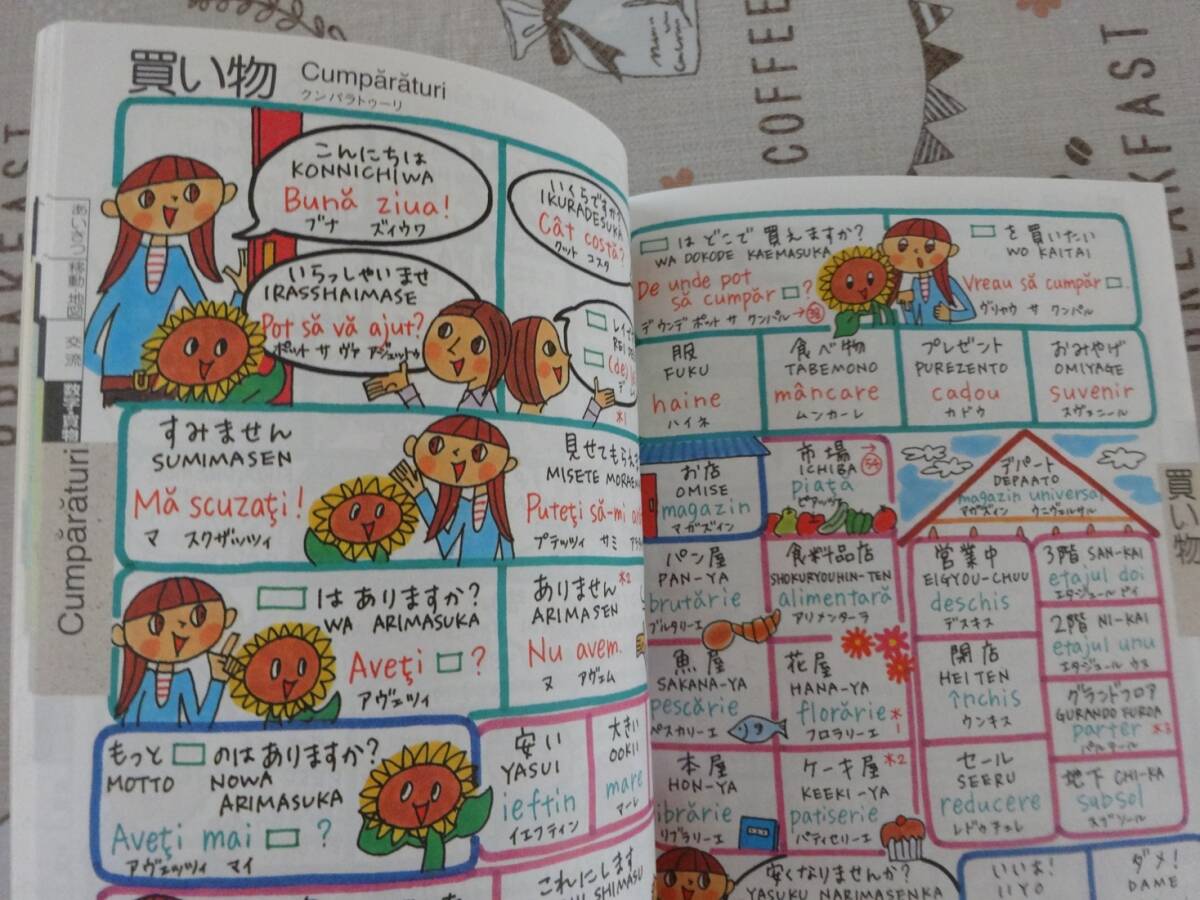 買い物
Cumpărături
クンパラトゥーリ
こんにちは
KONNICHIWA
Bună ziua!
ブナ ズィウワ
いらっしゃいませ
IRASSHAIMASE
Pot să vă ajut?
ポット サ ヴァ アジュットゥ
いくらですか?
IKURADESUKA
Cât costă?
クット コスタ
すみません
SUMIMASEN
Mă scuzaţi!
マ スクザッツィ
見せてもらえ
MISETE MORAE
Puteţi să-mi
プテッツィ サミ
□はありますか?
WA ARIMASUKA
Aveţi □?
アヴェッツィ
ありません *2
ARIMASEN
Nu avem.
ヌ アヴェム
もっと □ のはありますか?
MOTTO NOWA
ARIMASUKA
Aveţi mai □ ?
アヴェッツィ マイ
安い
YASUI
ieftin
イエフティン
大きい
OOKII
mare
マーレ
これにします
あいさつ
移動
地図
交流
Cumpărături
□はどこで買えますか?
WA DOKODE KAEMASUKA
De unde pot
să cumpăr □?
デ ウンデ ポット サ クンパル
□を買いたい
WO KAITAI
Vreau să cumpăr □.
ヴリャウ サ クンパル
服
FUKU
haine
ハイネ
食べ物
TABEMONO
mâncare
ムンカーレ
プレゼント
PUREZENTO
cadou
カドウ
おみやげ
OMIYAGE
suvenir
スヴェニール
お店
OMISE
magazin
マガズィン
市場 →54
ICHIBA
piaţă
ピアッツァ
デパート
DEPAATO
magazin universal
マガズィン ウニヴェルサル
パン屋
PAN-YA
brutărie
ブルタリーエ
食料品店
SHOKURYOUHIN-TEN
alimentară
アリメンターラ
営業中
EIGYOU-CHUU
deschis
デスキス
3階 SAN-KAI
etajul doi
エタジュール ドイ
魚屋
SAKANA-YA
pescărie
ペスカリーエ
花屋
HANA-YA
florărie *1
フロラリーエ
閉店
HEITEN
închis
ウンキス
2階 NI-KAI
etajul unu
エタジュール ウヌ
グランドフロア
GURANDO FUROA
parter *3
パルテール
本屋
HON-YA
librărie
リブラリーエ
ケーキ屋 *2
KEEKI-YA
patiserie
パティセリーエ
セール
SEERU
reducere
レドゥチェレ
地下 CHI-KA
subsol
スブソール
安くなりませんか?
YASUKU NARIMASENKA
いいよ!
IIYO
ダメ!
DAME
買い物
COFFEE
BREAKFAST